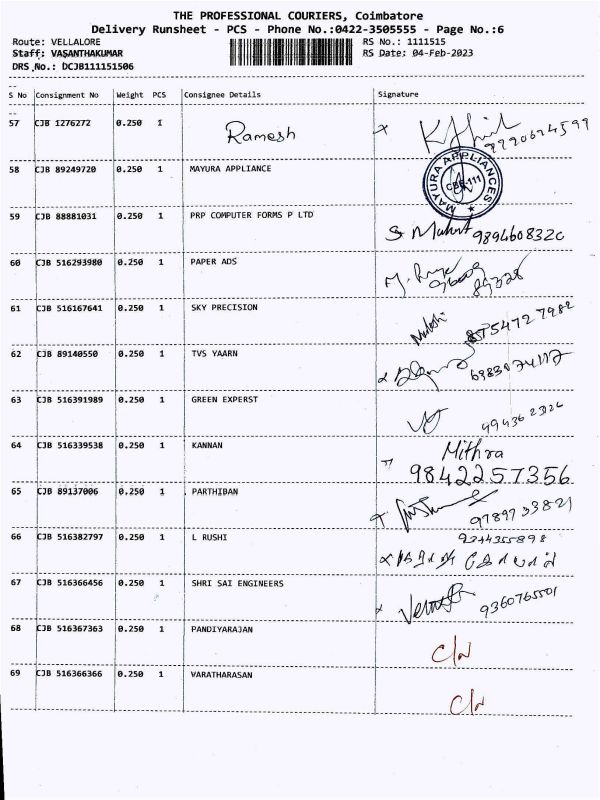 THE PROFESSIONAL COURIERS, Coimbatore
Delivery Runsheet - PCS - Phone No.:0422-3505555 - Page No.:6
Route: VELLALORE
RS No.: 1111515
Staff: VASANTHAKUMAR
RS Date: 04-Feb-2023
DRS No.: DCJB111151506
S No Consignment No Weight PCS Consignee Details Signature
57 CJB 1276272 0.250 1 Ramesh
58 CJB 89249720 0.250 1 MAYURA APPLIANCE MAYURA APPLIANCES
59 CJB 88881031 0.250 1 PRP COMPUTER FORMS P LTD 9894608320
60 CJB 516293980 0.250 1 PAPER ADS
61 CJB 516167641 0.250 1 SKY PRECISION 8754727982
62 CJB 89140550 0.250 1 TVS YAARN
63 CJB 516391989 0.250 1 GREEN EXPERST
64 CJB 516339538 0.250 1 KANNAN Mithra
9842257356
65 CJB 89137006 0.250 1 PARTHIBAN 9789733821
66 CJB 516382797 0.250 1 L RUSHI 9344355898
67 CJB 516366456 0.250 1 SHRI SAI ENGINEERS 9360765501
68 CJB 516367363 0.250 1 PANDIYARAJAN C/N
69 CJB 516366366 0.250 1 VARATHARASAN C/N